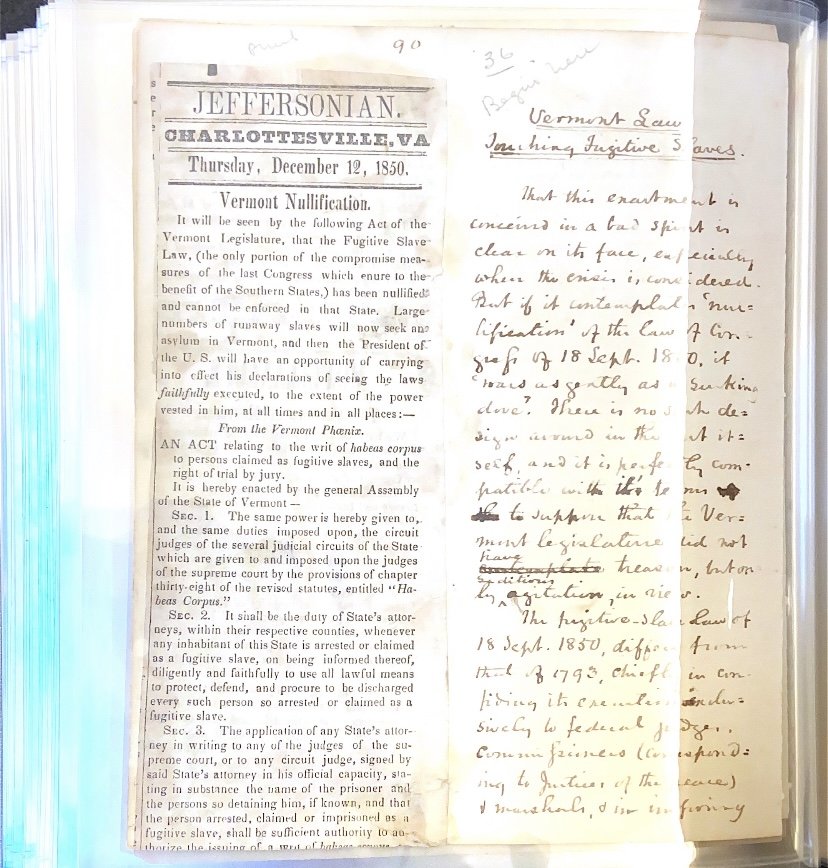 90
JEFFERSONIAN.
CHARLOTTESVILLE, VA
Thursday, December 12, 1850.
Vermont Nullification.
It will be seen by the following Act of the
Vermont Legislature, that the Fugitive Slave
Law, (the only portion of the compromise mea-
sures of the last Congress which enure to the
benefit of the Southern States,) has been nullified
and cannot be enforced in that State. Large
numbers of runaway slaves will now seek an
asylum in Vermont, and then the President of
the U. S. will have an opportunity of carrying
into effect his declarations of seeing the laws
faithfully executed, to the extent of the power
vested in him, at all times and in all places:—
From the Vermont Phœnix.
AN ACT relating to the writ of habeas corpus
to persons claimed as fugitive slaves, and the
right of trial by jury.
It is hereby enacted by the general Assembly
of the State of Vermont—
SEC. 1. The same power is hereby given to,
and the same duties imposed upon, the circuit
judges of the several judicial circuits of the State
which are given to and imposed upon the judges
of the supreme court by the provisions of chapter
thirty-eight of the revised statutes, entitled "Ha-
beas Corpus."
SEC. 2. It shall be the duty of State's attor-
neys, within their respective counties, whenever
any inhabitant of this State is arrested or claimed
as a fugitive slave, on being informed thereof,
diligently and faithfully to use all lawful means
to protect, defend, and procure to be discharged
every such person so arrested or claimed as a
fugitive slave.
SEC. 3. The application of any State's attor-
ney in writing to any of the judges of the su-
preme court, or to any circuit judge, signed by
said State's attorney in his official capacity, sta-
ting in substance the name of the prisoner and
the persons so detaining him, if known, and that
the person arrested, claimed or imprisoned as a
fugitive slave, shall be sufficient authority to au-
thorize the issuing of a writ of habeas corpus
36
Begin here
Vermont Law
Touching Fugitive Slaves.
That this enactment is
conceived in a bad spirit is
clear on its face, especially
when the crisis is considered.
But if it contemplates 'nul=
lification' of the law of Con=
gress of 18 Sept. 1850, it
'roars as gently as a sucking
dove'. There is no such de=
sign avowed in the act it=
self, and it is perfectly com=
patible with its terms
to suppose that the Ver=
mont legislature did not
have treason, but on=
ly seditious agitation, in view.
The fugitive-slave Law of
18 Sept. 1850, differs from
that of 1793, chiefly in con=
fiding its execution exclu=
sively to federal judges,
commissioners (correspond=
ing to Justices of the peace)
& marshals, & in